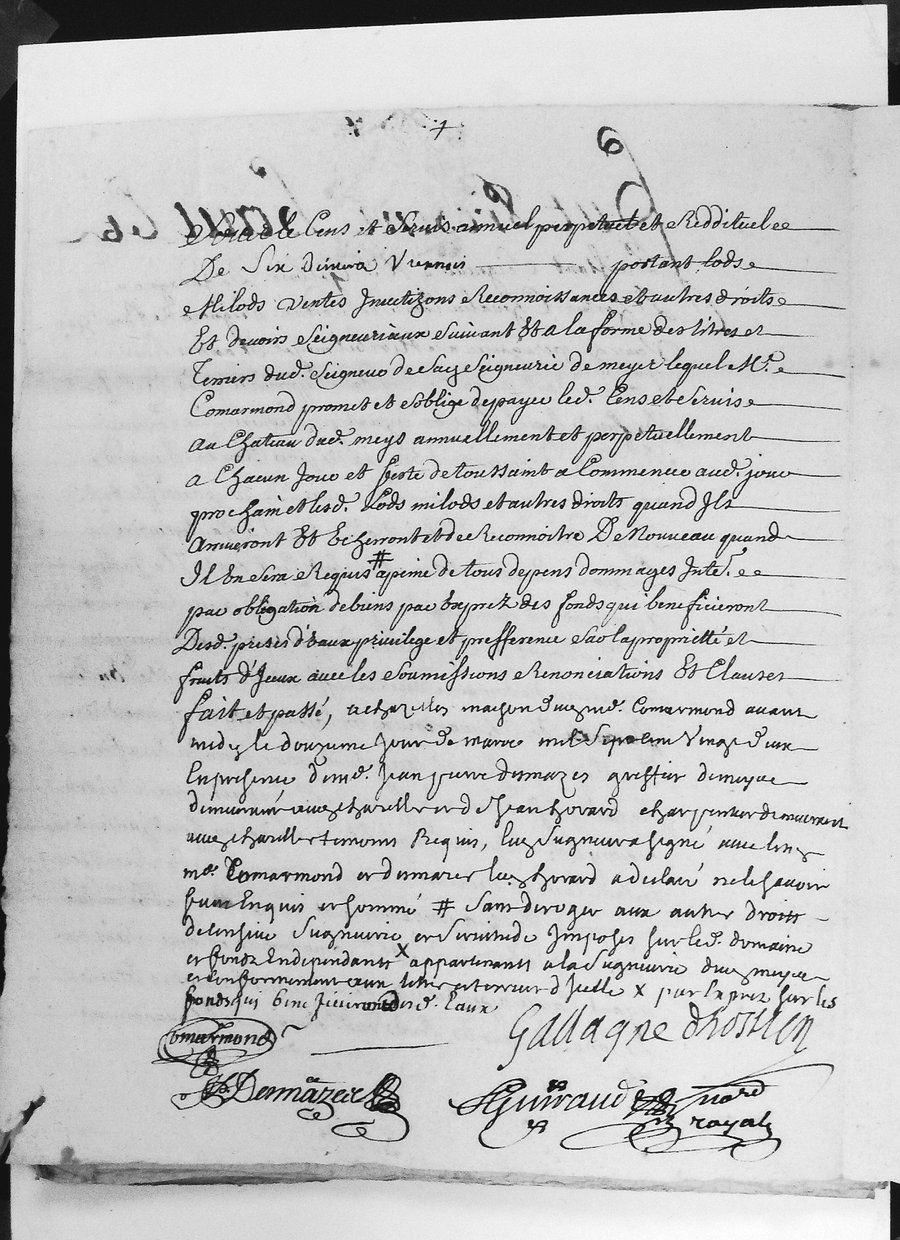 6
Cens et Servis annuel perpetuel et Reddituel
De Six deniers Viennois portant Lods
Milods ventes Inuetizons Reconnoissances et autres droits
Et devoirs Seigneuriaux Suivant Et a la forme des titres et
Terriers dud. Seigneur de sa Seigneurie de meys lequel Mr.
Comarmond promet et soblige de payer led. Cens et Servis
Au Chateau dud. meys annuellement et perpetuellement
a Chacun Jour et feste de toussaint a Commencer aud. jour
prochain et lesd. Lods milods et autres droits quand Ils
Arriueront Et Echerront et de Reconnoitre De Nouveau quand
Il En Sera Requis # apeine de tous depens dommages Inte.
par obligation de biens par Exprez des fonds qui beneficieront
Desd. prises d'Eaux privilege et presference Sur la proprietté et
fruits d'Jceux avec les Soumissions Renonciations Et Clauses
fait et passé, a maison dud. me. Comarmond avant
midy le douzieme Jour de mars mil Sept cent Vingt deux
En presence de me. Jean pierre demazes greffier de meys
demeurant et de Jean hovard charpentier demeurant
temoins Requis, Led. Seigneur a signé avec led.
me. Comarmond et demazes led. hovard a declaré ne le scavoir
faire Enquis et sommé # Sans deroger aux autres droits
de Censive Seigneurie et Servitude Imposés sur led. domaine
et fonds En dependants x appartenants a la Seigneurie dud. meys
et Conformement aux titres et terriers d'Icelle x par Exprez sur les
fonds qui beneficieront desd. Eaux
Comarmond
Gallagne
Demazes
Guiraud
royal